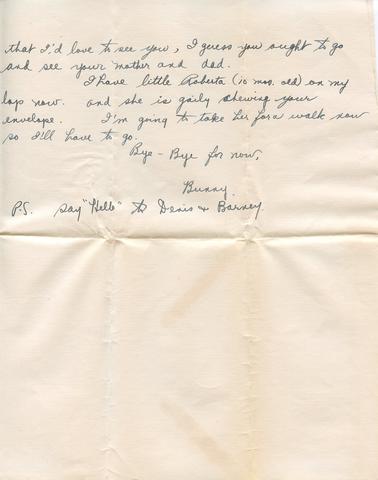 that I'd love to see you, I guess you ought to go
and see your mother and dad.
I have little Roberta (10 mos. old) on my
lap now. and she is gaily chewing your
envelope. I'm going to take her for a walk now
so I'll have to go.
Bye-Bye for now,
Bunny.
P.S. say "Hello" to Denis & Barney.